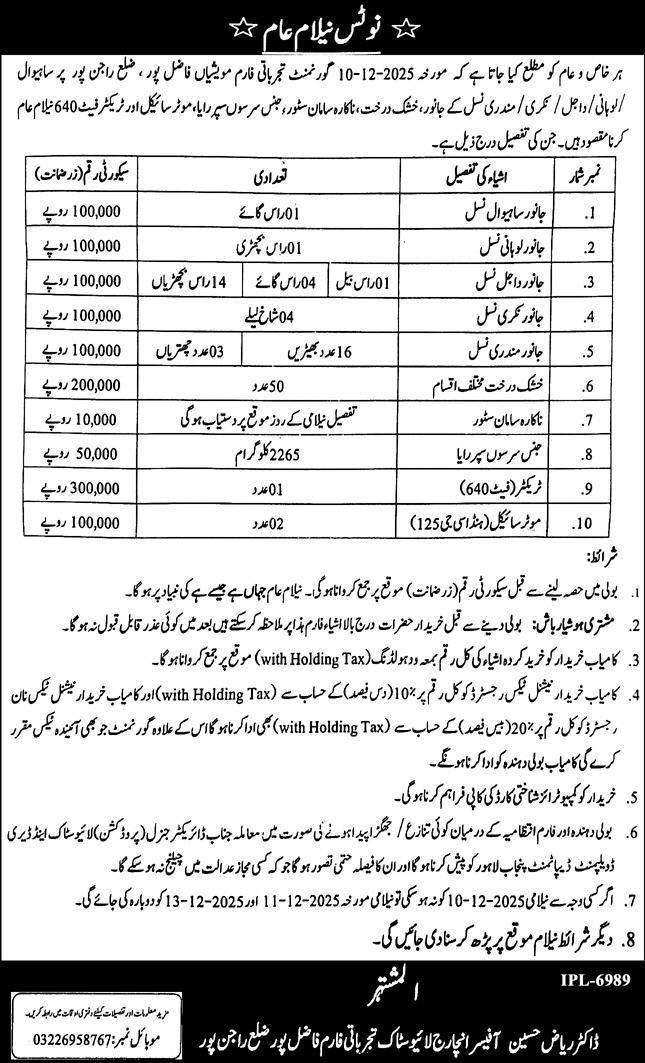 ☆ نوٹس نیلام عام ☆
ہر خاص و عام کو مطلع کیا جاتا ہے کہ مورخہ 2025-12-10 گورنمنٹ تجرباتی فارم مویشیاں فاضل پور، ضلع راجن پور پر ساہیوال
/لوہانی/داجل/نکری/مندری نسل کے جانور، خشک درخت، ناکارہ سامان سٹور، جنس سرسوں سپر رایا، موٹر سائیکل اور ٹریکٹر فیٹ 640 نیلام عام
کرنا مقصود ہیں۔ جن کی تفصیل درج ذیل ہے۔
نمبر شمار اشیاء کی تفصیل تعدادی سیکورٹی رقم (زرضمانت)
1. جانور ساہیوال نسل 01 راس گائے 100,000 روپے
2. جانور لوہانی نسل 01 راس بچھڑی 100,000 روپے
3. جانور داجل نسل 01 راس بیل 04 راس گائے 14 راس بچھڑیاں 100,000 روپے
4. جانور نکری نسل 04 شاخ لیلے 100,000 روپے
5. جانور مندری نسل 16 عدد بھیڑیں 03 عدد چھتریاں 100,000 روپے
6. خشک درخت مختلف اقسام 50 عدد 200,000 روپے
7. ناکارہ سامان سٹور تفصیل نیلامی کے روز موقع پر دستیاب ہوگی 10,000 روپے
8. جنس سرسوں سپر رایا 2265 کلوگرام 50,000 روپے
9. ٹریکٹر (فیٹ 640) 01 عدد 300,000 روپے
10. موٹر سائیکل (ہنڈا سی جی 125) 02 عدد 100,000 روپے
شرائط:
1. بولی میں حصہ لینے سے قبل سیکورٹی رقم (زرضمانت) موقع پر جمع کروانا ہوگی۔ نیلام عام جہاں ہے جیسے ہے کی بنیاد پر ہوگا۔
2. مشتری ہوشیار باش: بولی دینے سے قبل خریدار حضرات درج بالا اشیاء فارم ہذا پر ملاحظہ کر سکتے ہیں بعد میں کوئی عذر قابل قبول نہ ہوگا۔
3. کامیاب خریدار کو خرید کردہ اشیاء کی کل رقم بمعہ ود ہولڈنگ (with Holding Tax) موقع پر جمع کروانا ہوگا۔
4. کامیاب خریدار نیشنل ٹیکس رجسٹرڈ کو کل رقم پر 10% (دس فیصد) کے حساب سے (with Holding Tax) اور کامیاب خریدار نیشنل ٹیکس نان
رجسٹرڈ کو کل رقم پر 20% (بیس فیصد) کے حساب سے (with Holding Tax) بھی ادا کرنا ہوگا اس کے علاوہ گورنمنٹ جو بھی آئیندہ ٹیکس مقرر
کرے گی کامیاب بولی دہندہ کو ادا کرنا ہونگے۔
5. خریدار کو کمپیوٹرائز شناختی کارڈ کی کاپی فراہم کرنا ہوگی۔
6. بولی دہندہ اور فارم انتظامیہ کے درمیان کوئی تنازع / جھگڑا پیدا ہونے کی صورت میں معاملہ جناب ڈائریکٹر جنرل (پروڈکشن) لائیوسٹاک اینڈ ڈیری
ڈویلپمنٹ ڈیپارٹمنٹ پنجاب لاہور کو پیش کرنا ہوگا اور ان کا فیصلہ حتمی تصور ہوگا جو کہ کسی مجاز عدالت میں چیلنج نہ ہو سکے گا۔
7. اگر کسی وجہ سے نیلامی 2025-12-10 کو نہ ہو سکی تو نیلامی مورخہ 2025-12-11 اور 2025-12-13 کو دوبارہ کی جائے گی۔
8. دیگر شرائط نیلام موقع پر پڑھ کر سنا دی جائیں گی۔
IPL-6989
المشتہر
ڈاکٹر ریاض حسین آفیسر انچارج لائیوسٹاک تجرباتی فارم فاضل پور ضلع راجن پور
مزید معلومات اور تفصیلات کیلئے دفتری اوقات میں رابطہ کریں۔
موبائل نمبر: 03226958767